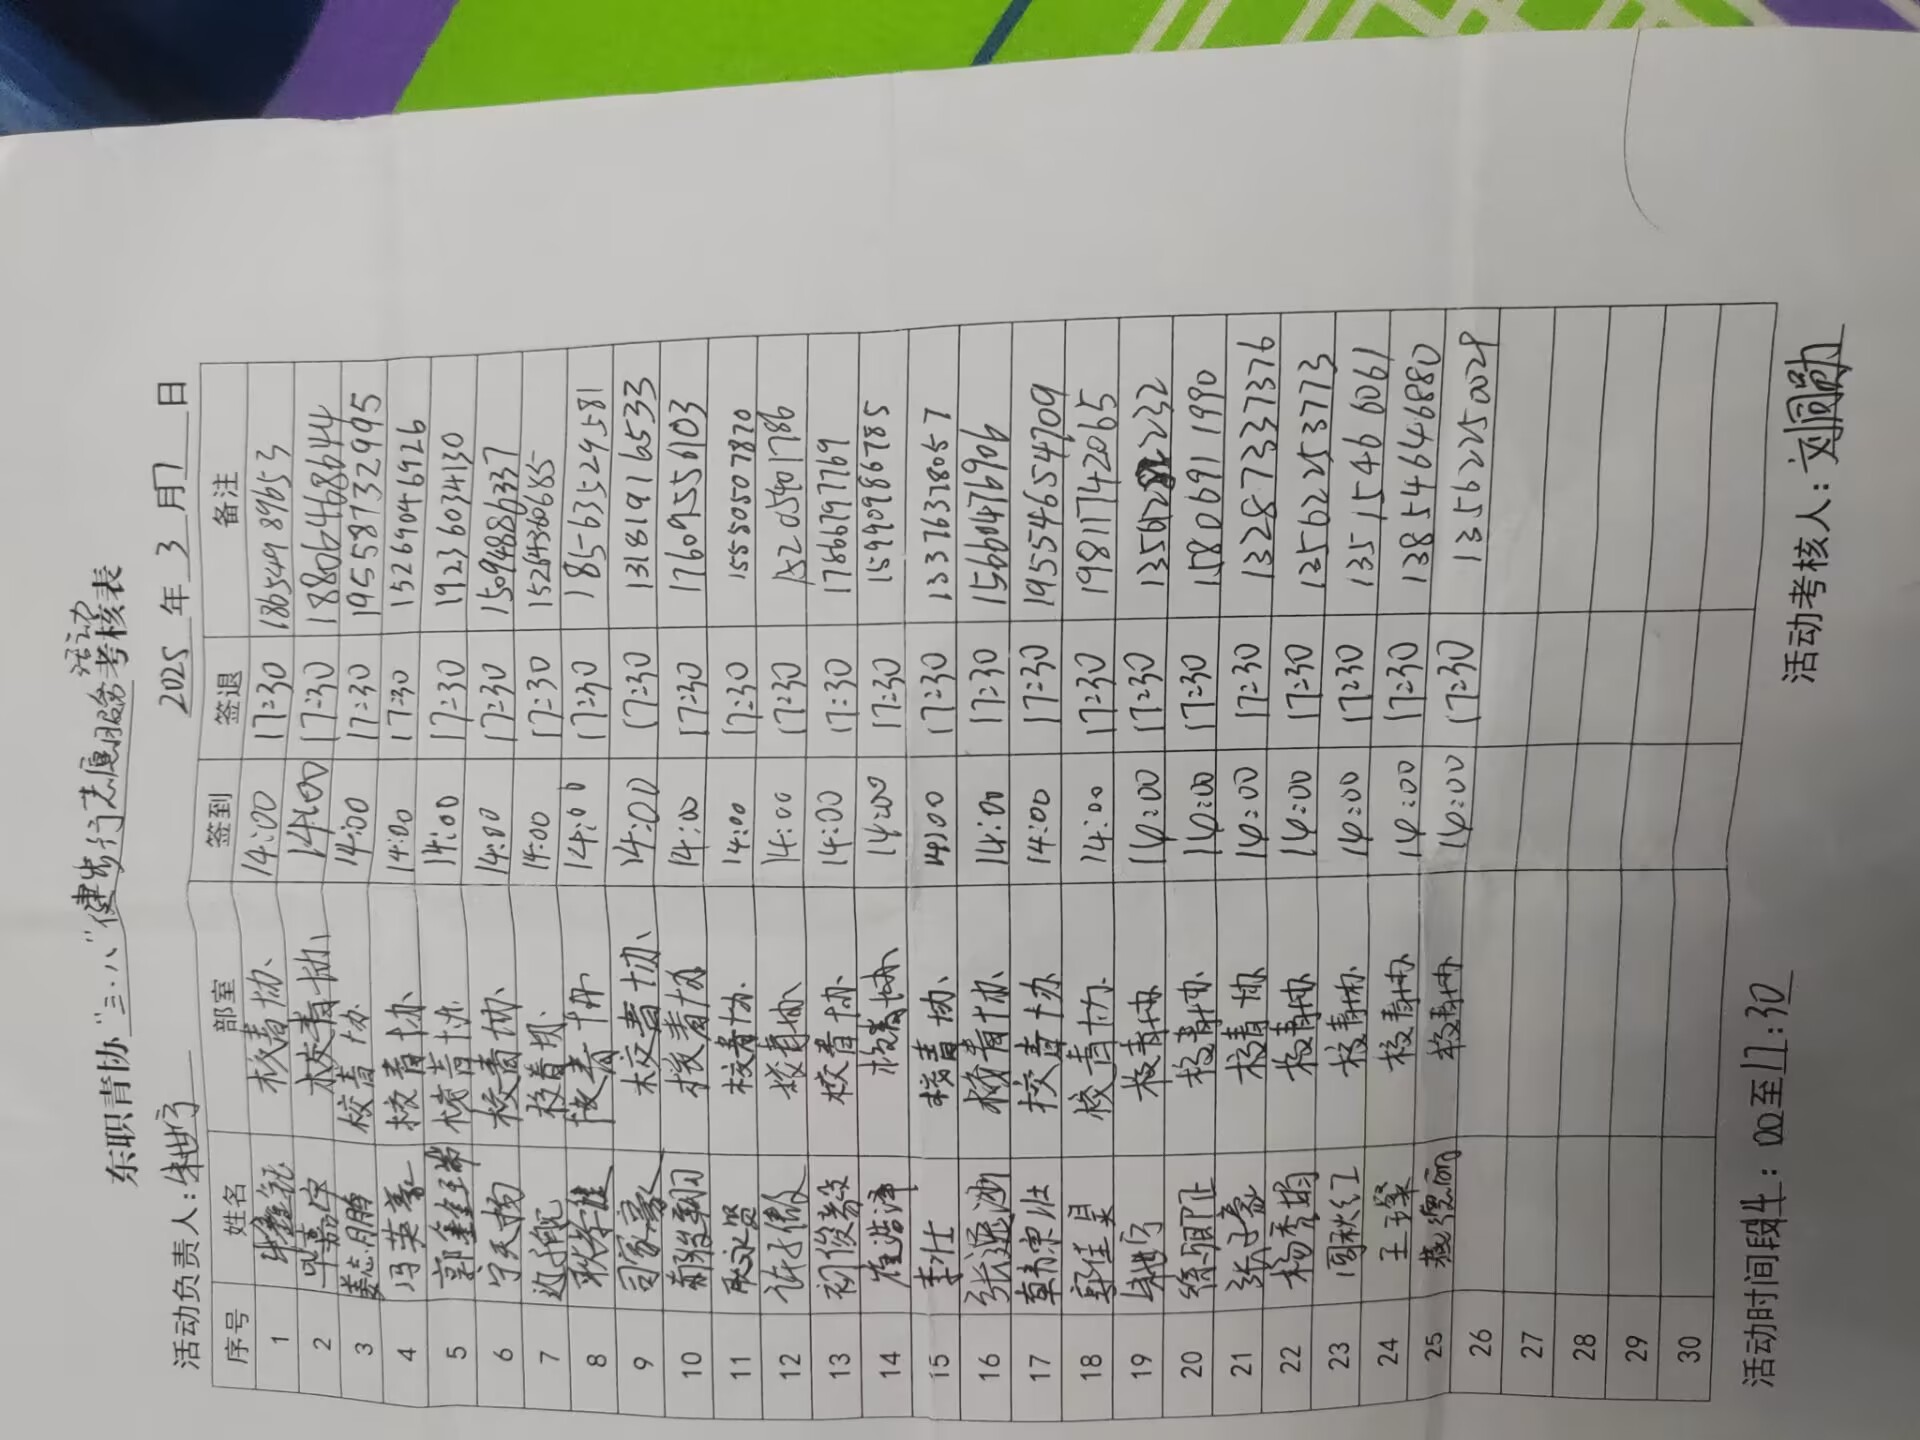 东职青协"三·八"健步行志愿服务活动考核表
活动负责人:朱世宁 2025年3月7日
序号 姓名 部室 签到 签退 备注
1 校青协 14:00 17:30 18654989653
2 校青协 14:00 17:30 18806468644
3 姜志鹏 校青协 14:00 17:30 19558732995
4 冯英豪 校青协 14:00 17:30 15269046926
5 校青协 14:00 17:30 19236034130
6 宁天均 校青协 14:00 17:30 15094886337
7 校青协 14:00 17:30 15264360685
8 校青协 14:00 17:30 18563529581
9 司家豪 校青协 14:00 17:30 13181916533
10 校青协 14:00 17:30 17609556103
11 校青协 14:00 17:30 15580507870
12 许子傲 校青协 14:00 17:30 15205401786
13 初俊毅 校青协 14:00 17:30 17866797769
14 崔浩泽 校青协 14:00 17:30 15990986785
15 李仕 校青协 14:00 17:30 13376378057
16 校青协 14:00 17:30 15660476906
17 校青协 14:00 17:30 19554654709
18 郭佳昊 校青协 14:00 17:30 19811742065
19 朱世宁 校青协 14:00 17:30
20 校青协 14:00 17:30 15806911990
21 张子豪 校青协 14:00 17:30 13287337376
22 杨秀娟 校青协 14:00 17:30 13562253773
23 周秋红 校青协 14:00 17:30 13515466061
24 王璨 校青协 14:00 17:30 13854646880
25 燕德丽 校青协 14:00 17:30 13562250029
26
27
28
29
30
活动时间段14:00至17:30 活动考核人: